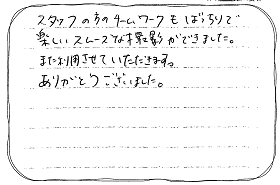 スタッフの方のチームワークもばっちりで
楽しいスムーズな撮影ができました。
また利用させていただきます。
ありがとうございました。